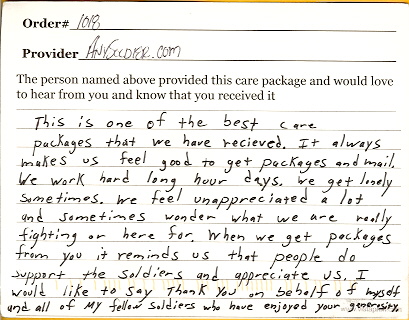 Order# 1018
Provider AnySoldier.com
The person named above provided this care package and would love
to hear from you and know that you received it
This is one of the best care
packages that we have recieved. It always
makes us feel good to get packages and mail.
We work hard long hour days. We get lonely
sometimes. We feel unappreciated a lot
and sometimes wonder what we are really
fighting or here for. When we get packages
from you it reminds us that people do
support the soldiers and appreciate us. I
would like to say Thank You on behalf of myself
and all of my fellow soldiers who have enjoyed your generosity.